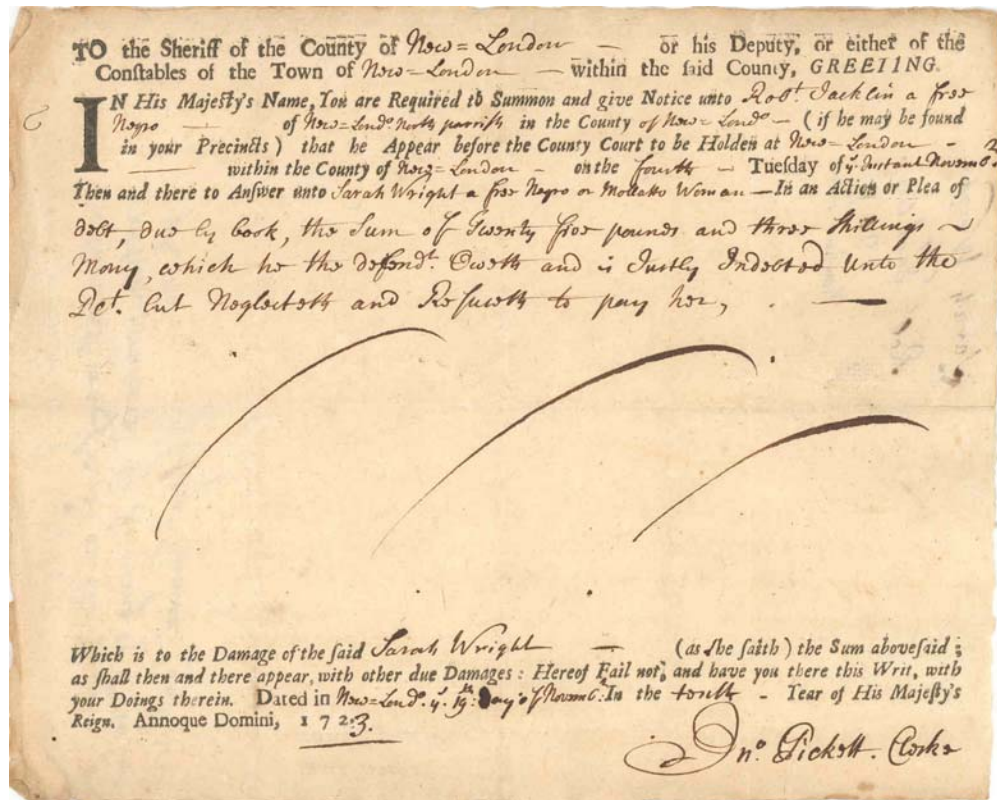 TO the Sheriff of the County of New=London — or his Deputy, or either of the
Conſtables of the Town of New=London — within the ſaid County, GREETING.
IN His Majeſty's Name, You are Required to Summon and give Notice unto Robt. Jacklin a free
Negro — of New=Londo. North parrish in the County of New=Londo — (if he may be found
in your Precincts) that he Appear before the County Court to be Holden at New=London -
— within the County of New=London - on the fourth - Tueſday of y. Instant Novemb
Then and there to Anſwer unto Sarah Wright a free Negro or Mollatto Woman — In an Action or Plea of
debt, due by book, the Sum of Twenty five pounds and three Shillings ~
Mony, which he the deffendt. Oweth and is Justly Indebted Unto the
but Neglecteth and Refuseth to pay her, . —
Which is to the Damage of the ſaid Sarah Wright — (as ſhe ſaith) the Sum aboveſaid ;
as ſhall then and there appear, with other due Damages : Hereof Fail not, and have you there this Writ, with
your Doings therein. Dated in New=Londo. y. 19th: Day of Novemb: In the tenth - Year of His Majeſty's
Reign. Annoque Domini, 1723.
Jno. Pickett. Clerke